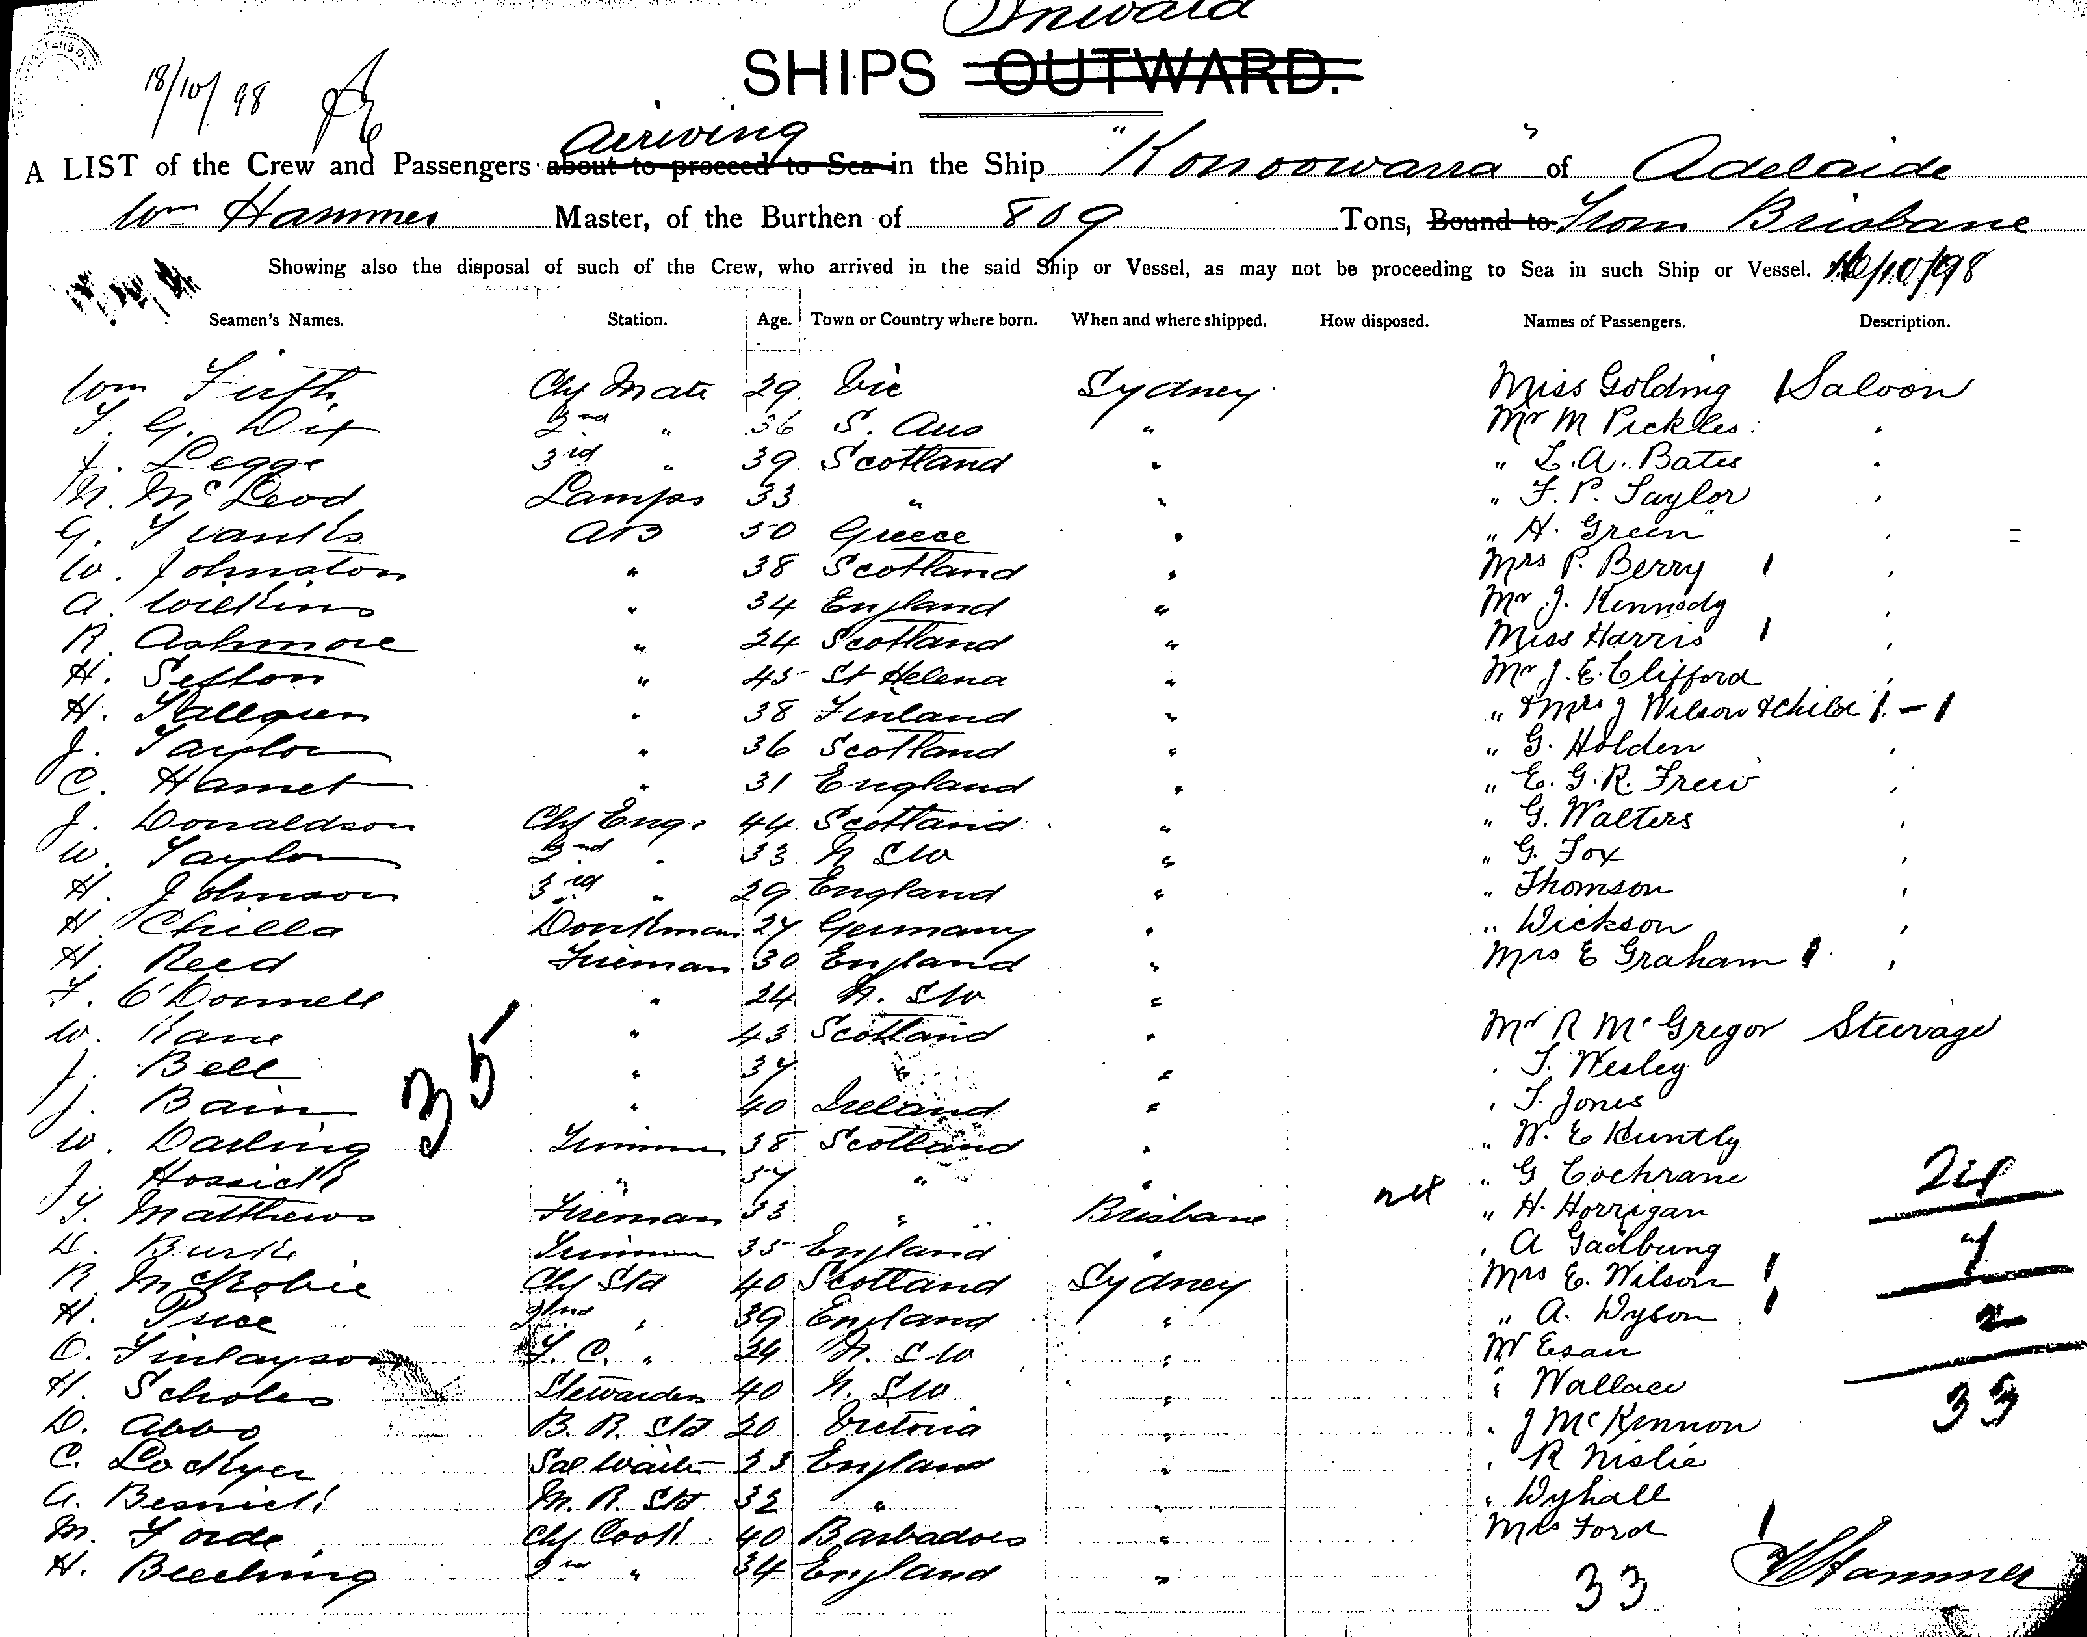 Inward
SHIPS OUTWARD.
18/10/98
Arriving
A LIST of the Crew and Passengers about to proceed to Sea in the Ship "Konoowarra" of Adelaide
Wm Hammer Master, of the Burthen of 809 Tons, Bound to From Brisbane
Showing also the disposal of such of the Crew, who arrived in the said Ship or Vessel, as may not be proceeding to Sea in such Ship or Vessel. /10/98
Seamen's Names. Station. Age. Town or Country where born. When and where shipped. How disposed. Names of Passengers. Description.
Wm Firth Chf Mate 29 Vic Sydney Miss Golding 1 Saloon
T. G. Dix 2nd " 36 S. Aus " Mr M Pickles "
J. Legge 3rd " 39 Scotland " " L. A. Bates "
N. McLeod Lamps 33 " " " F. P. Taylor "
G. AB 50 Greece " " H. Green "
W. Johnston " 38 Scotland " Mrs P. Berry 1 "
A. Wilkins " 34 England " Mr J. Kennedy "
R. Ashmore " 24 Scotland " Miss Harris 1 "
H. Sefton " 45 St Helena " Mr J. E. Clifford "
H. " 38 Finland " " & Mrs J Wilson & child 1 - 1
J. Taylor " 36 Scotland " " G. Holden "
C. Hamet " 31 England " " E. G. R. Frew "
J. Donaldson Chf Engr 44 Scotland " " G. Walters "
W. Taylor 2nd " 33 N SW " " G. Fox "
H. Johnson 3rd " 29 England " " Thomson "
H. Chilla Donkman 27 Germany " " Dickson "
H. Reed Fireman 30 England " Mrs E Graham 1 "
F. O'Donnell " 24 N. SW "
W. Kane " 43 Scotland " Mr R McGregor Steerage
J. Bell " 37 " " " T. Wesley
J. Bain " 40 Ireland " " T. Jones
35
W. Darling Trimmer 38 Scotland " " W. E Huntly
J. Hossick " 57 " " " G Cochrane 24
T. Matthews Fireman 33 " Brisbane " H. Horrigan
D. Burke Trimmer 35 England " " A Gadbung 7
R. McRobie Chf Std 40 Scotland Sydney Mrs E. Wilson 1
H. Price 2nd " 39 England " " A. Dyson 1 2
O. Finlayson F. C. " 24 N. SW " Mr Esau
H. Scholes Stewardess 40 N. SW " " Wallace 33
D. Abbs B. R. Std 20 Victoria " " J McKennon
C. Lockyer Sal Waiter 33 England " " R Nislie
A. Besnick M. R. Std 32 " " " Dyhall
M. Forde Chf Cook 40 Barbadoes " Mrs Ford 1
H. Beeching 2nd " 34 England "
33
W Hammer